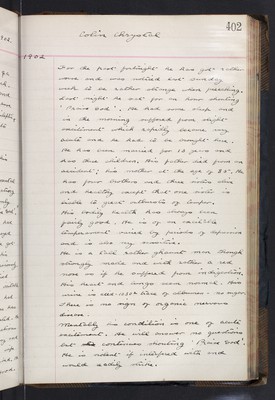 402
Colin Chrystal
1902
For the past fortnight he has got rather
worse and was noticed last Sunday
week to be rather strange when preaching.
Last night he sat for an hour shouting
'Praise God'. He had some sleep and
in the morning suffered from slight
excitement which rapidly became very
acute and he had to be brought here.
He has been married for 13 years and
has three children. His father died from an
accident; his mother at the age of 85. He
has four brothers and three sisters alive
and healthy except that one sister is
liable to great outbursts of temper.
His bodily health has always been
fairly good. He is of an excitable
temperament varied by periods of depression
and is also very sensitive.
He is a tall rather gaunt man though
strongly made and with rather a red
nose as if he suffered from indigestion.
His heart and lungs seem normal. His
urine is acid
no sugar.
There is no sign of organic nervous
disease.
Mentally his condition is one of acute
excitement. He will answer no questions
but continues shouting 'Praise God'.
He is violent if interfered with and
would easily strike.